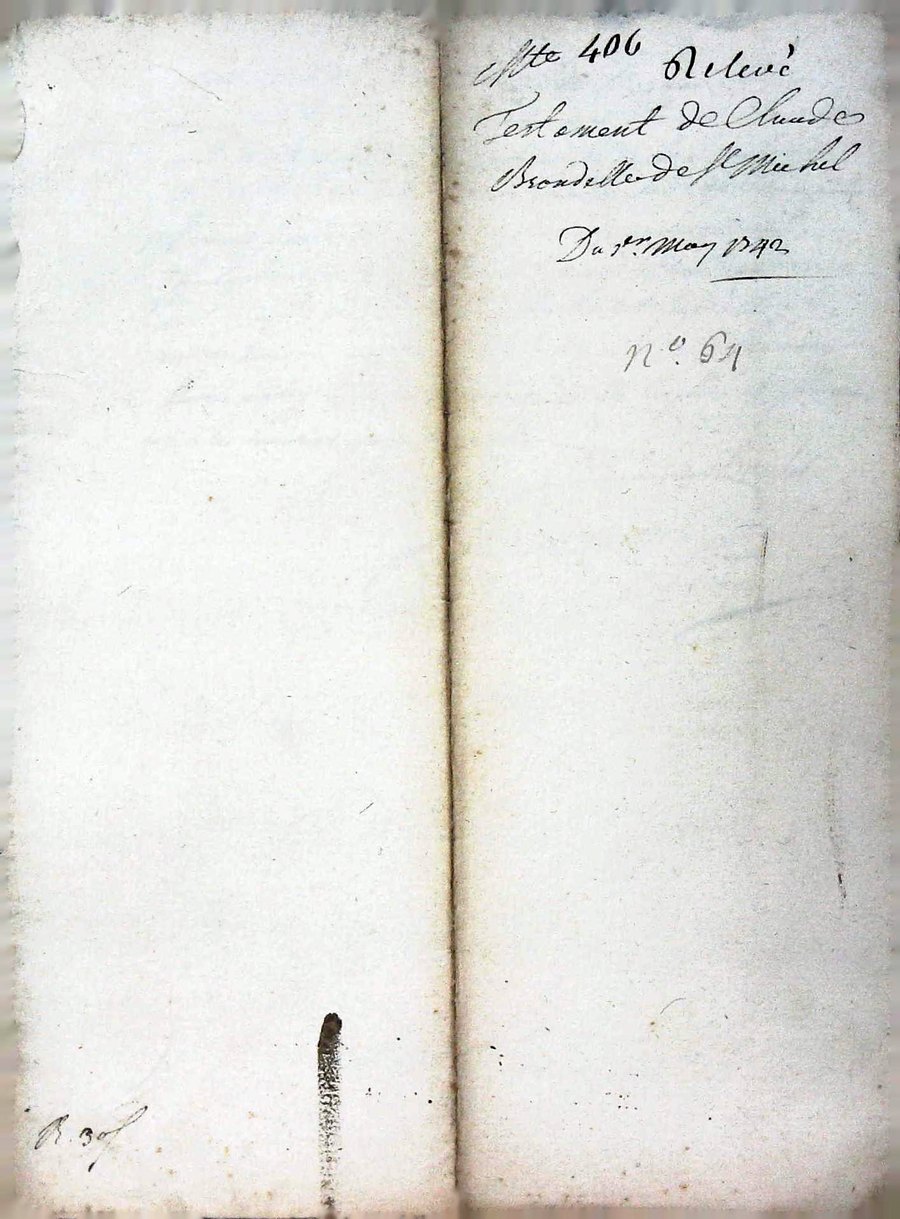 Cotte 406 Relevé
Testament de Claude
Brondelle de St Michel
Du 1er May 1742
No. 64
R. 30s